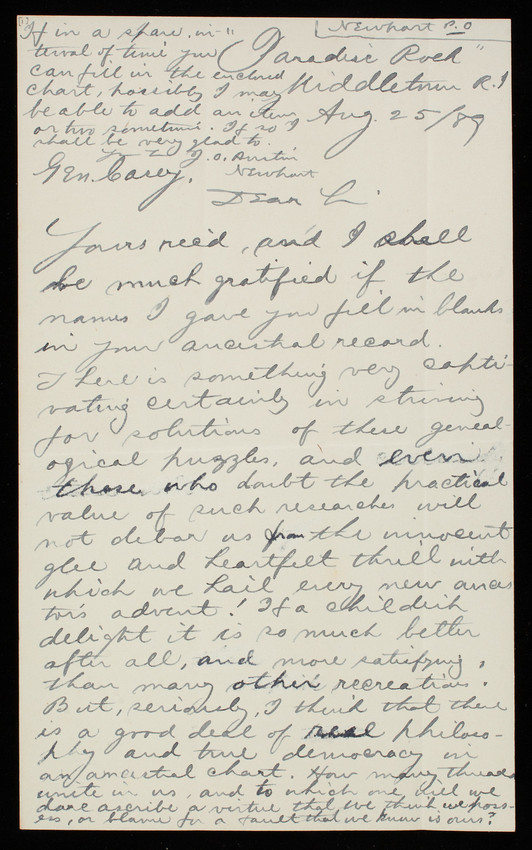 (1)
Newport P.O
If in a spare in-
terval of time you
can fill in the enclosed
chart, possibly I may
be able to add an item
or two sometime. If so I
shall be very glad to.
J. O. Austin
Newport
"Paradise Rock"
Middletown R.I
Aug. 25/89
Gen. Casey.
Dear Sir
Yours rec'd, and I shall
be much gratified if the
names I gave you fill in blanks
in your ancestral record.
There is something very capti-
vating certainly in striving
for solutions of these geneal-
ogical puzzles, and even
those who doubt the practical
value of such researches will
not debar us from the innocent
glee and heartfelt thrill with
which we hail every new ances
tor's advent! If a childish
delight it is so much better
after all, and more satisfying,
than many other recreations.
But, seriously, I think that there
is a good deal of real philoso-
phy and true democracy in
an ancestral chart. How many threads
unite in us, and to which one, will we
dare ascribe a virtue that we think we poss-
ess, or blame for a fault that we know is ours?